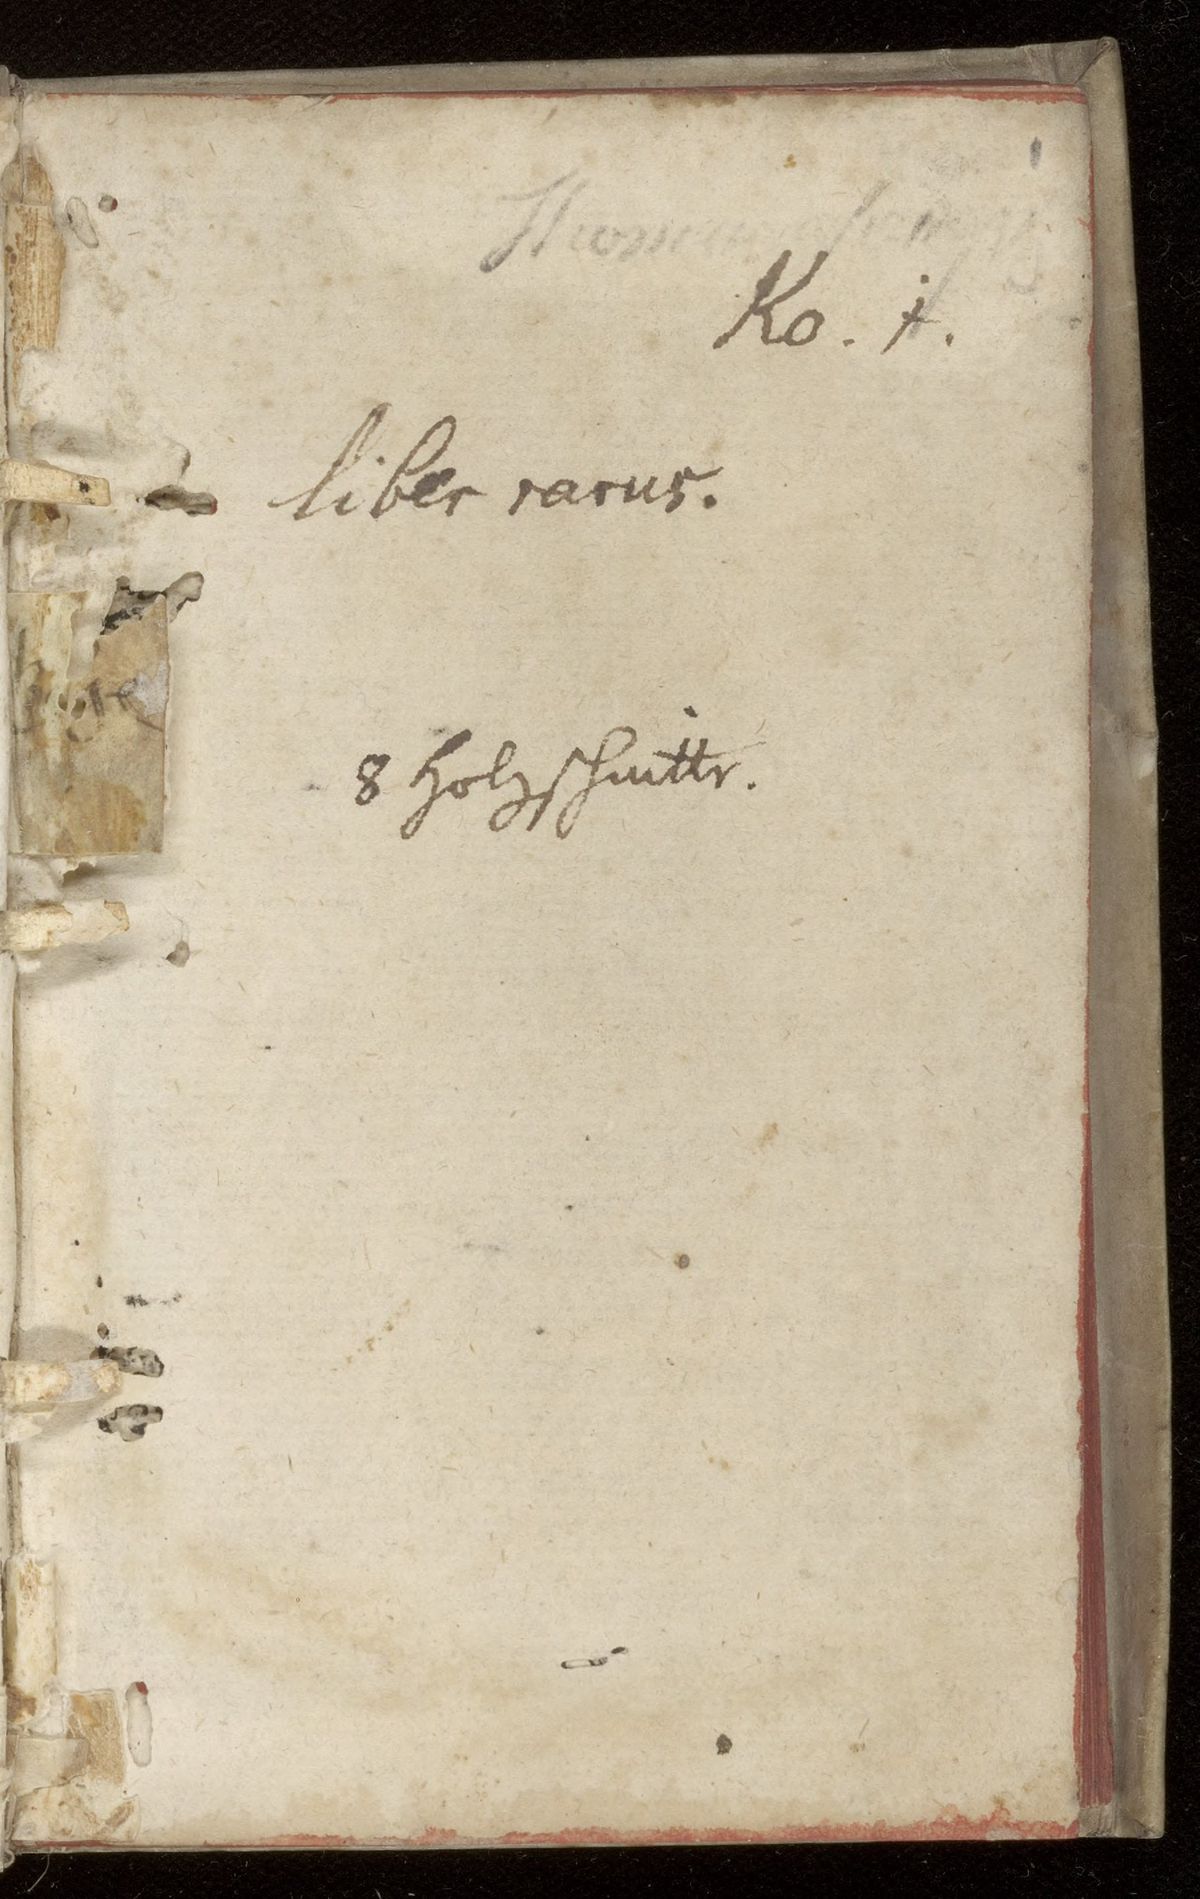 Ko. j.
liber rarus.
8 Holzschnitte.